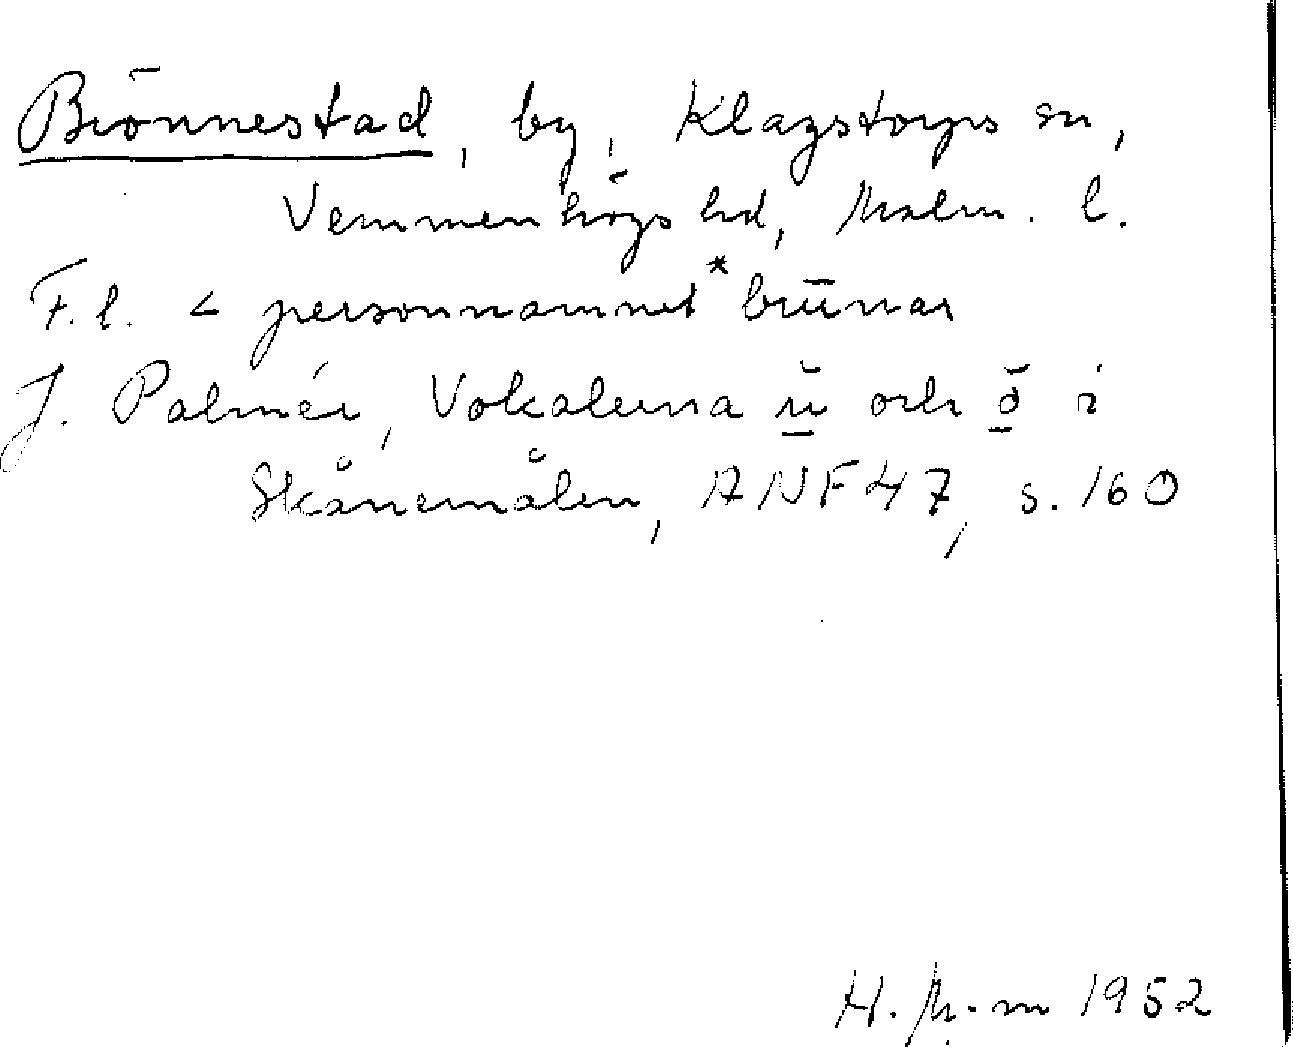 Brönnestad, by, Klagstorps sn,
Vemmenhögs hd, Malm. l.
F.l. < personnamnet *brūnar
J. Palmér, Vokalerna ŭ och ŏ i
Skånemålen, ANF 47, s. 160
H. M-m 1952